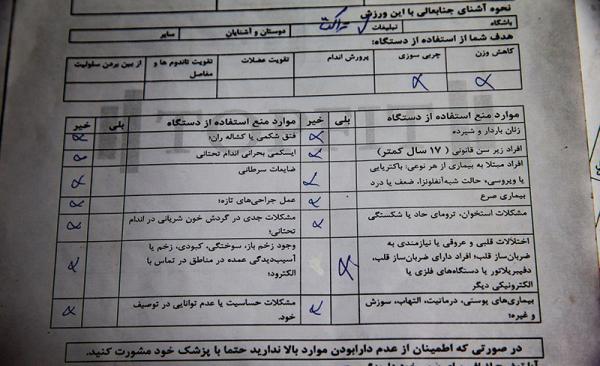 نحوه آشنای جنابعالی با این ورزش
باشگاه تبلیغات تراکت دوستان و آشنایان سایر
هدف شما از استفاده از دستگاه:
کاهش وزن چربی سوزی پرورش اندام تقویت عضلات تقویت تاندوم ها و مفاصل از بین بردن سلولیت
موارد منع استفاده از دستگاه بلی خیر موارد منع استفاده از دستگاه بلی خیر
زنان باردار و شیرده فتق شکمی یا کشاله ران؛
افراد زیر سن قانونی ( ۱۷ سال کمتر) ایسکمی بحرانی اندام تحتانی
افراد مبتلا به بیماری از هر نوعی: باکتریایی ضایعات سرطانی
یا ویروسی، حالت شبه‌آنفلونزا، ضعف یا درد
بیماری صرع عمل جراحی‌های تازه؛
مشکلات استخوان، ترومای حاد یا شکستگی مشکلات جدی در گردش خون شریانی در اندام
تحتانی؛
اختلالات قلبی و عروقی یا نیازمندی به وجود زخم باز، سوختگی، کبودی، زخم یا
ضربان‌ساز قلب؛ افراد دارای ضربان‌ساز قلب، آسیب‌دیدگی عمده در مناطق در تماس با
دفیبریلاتور یا دستگاه‌های فلزی یا الکترود؛
الکترونیکی دیگر
بیماری‌های پوستی، درماتیت، التهاب، سوزش مشکلات حساسیت یا عدم توانایی در توصیف
و غیره؛ خود.
در صورتی که اطمینان از عدم دارابودن موارد بالا ندارید حتما با پزشک خود مشورت کنید.